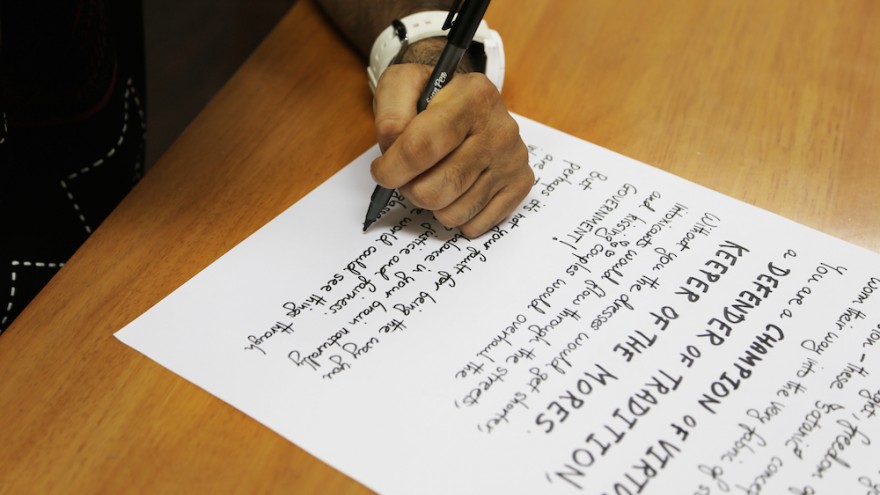 freedom
these Satanic
worm their way into the very fabric of
You are a CHAMPION OF VIRTU
a DEFENDER OF TRADITION,
KEEPER OF THE MORES.
Without you the dresses would get shorter,
intoxicants would flow through the streets,
and kissing couples would overhaul the
GOVERNMENT!
But
perhaps it's not your fault for being the way you
are balance in your brain naturally
justice and fairness
world could see things through